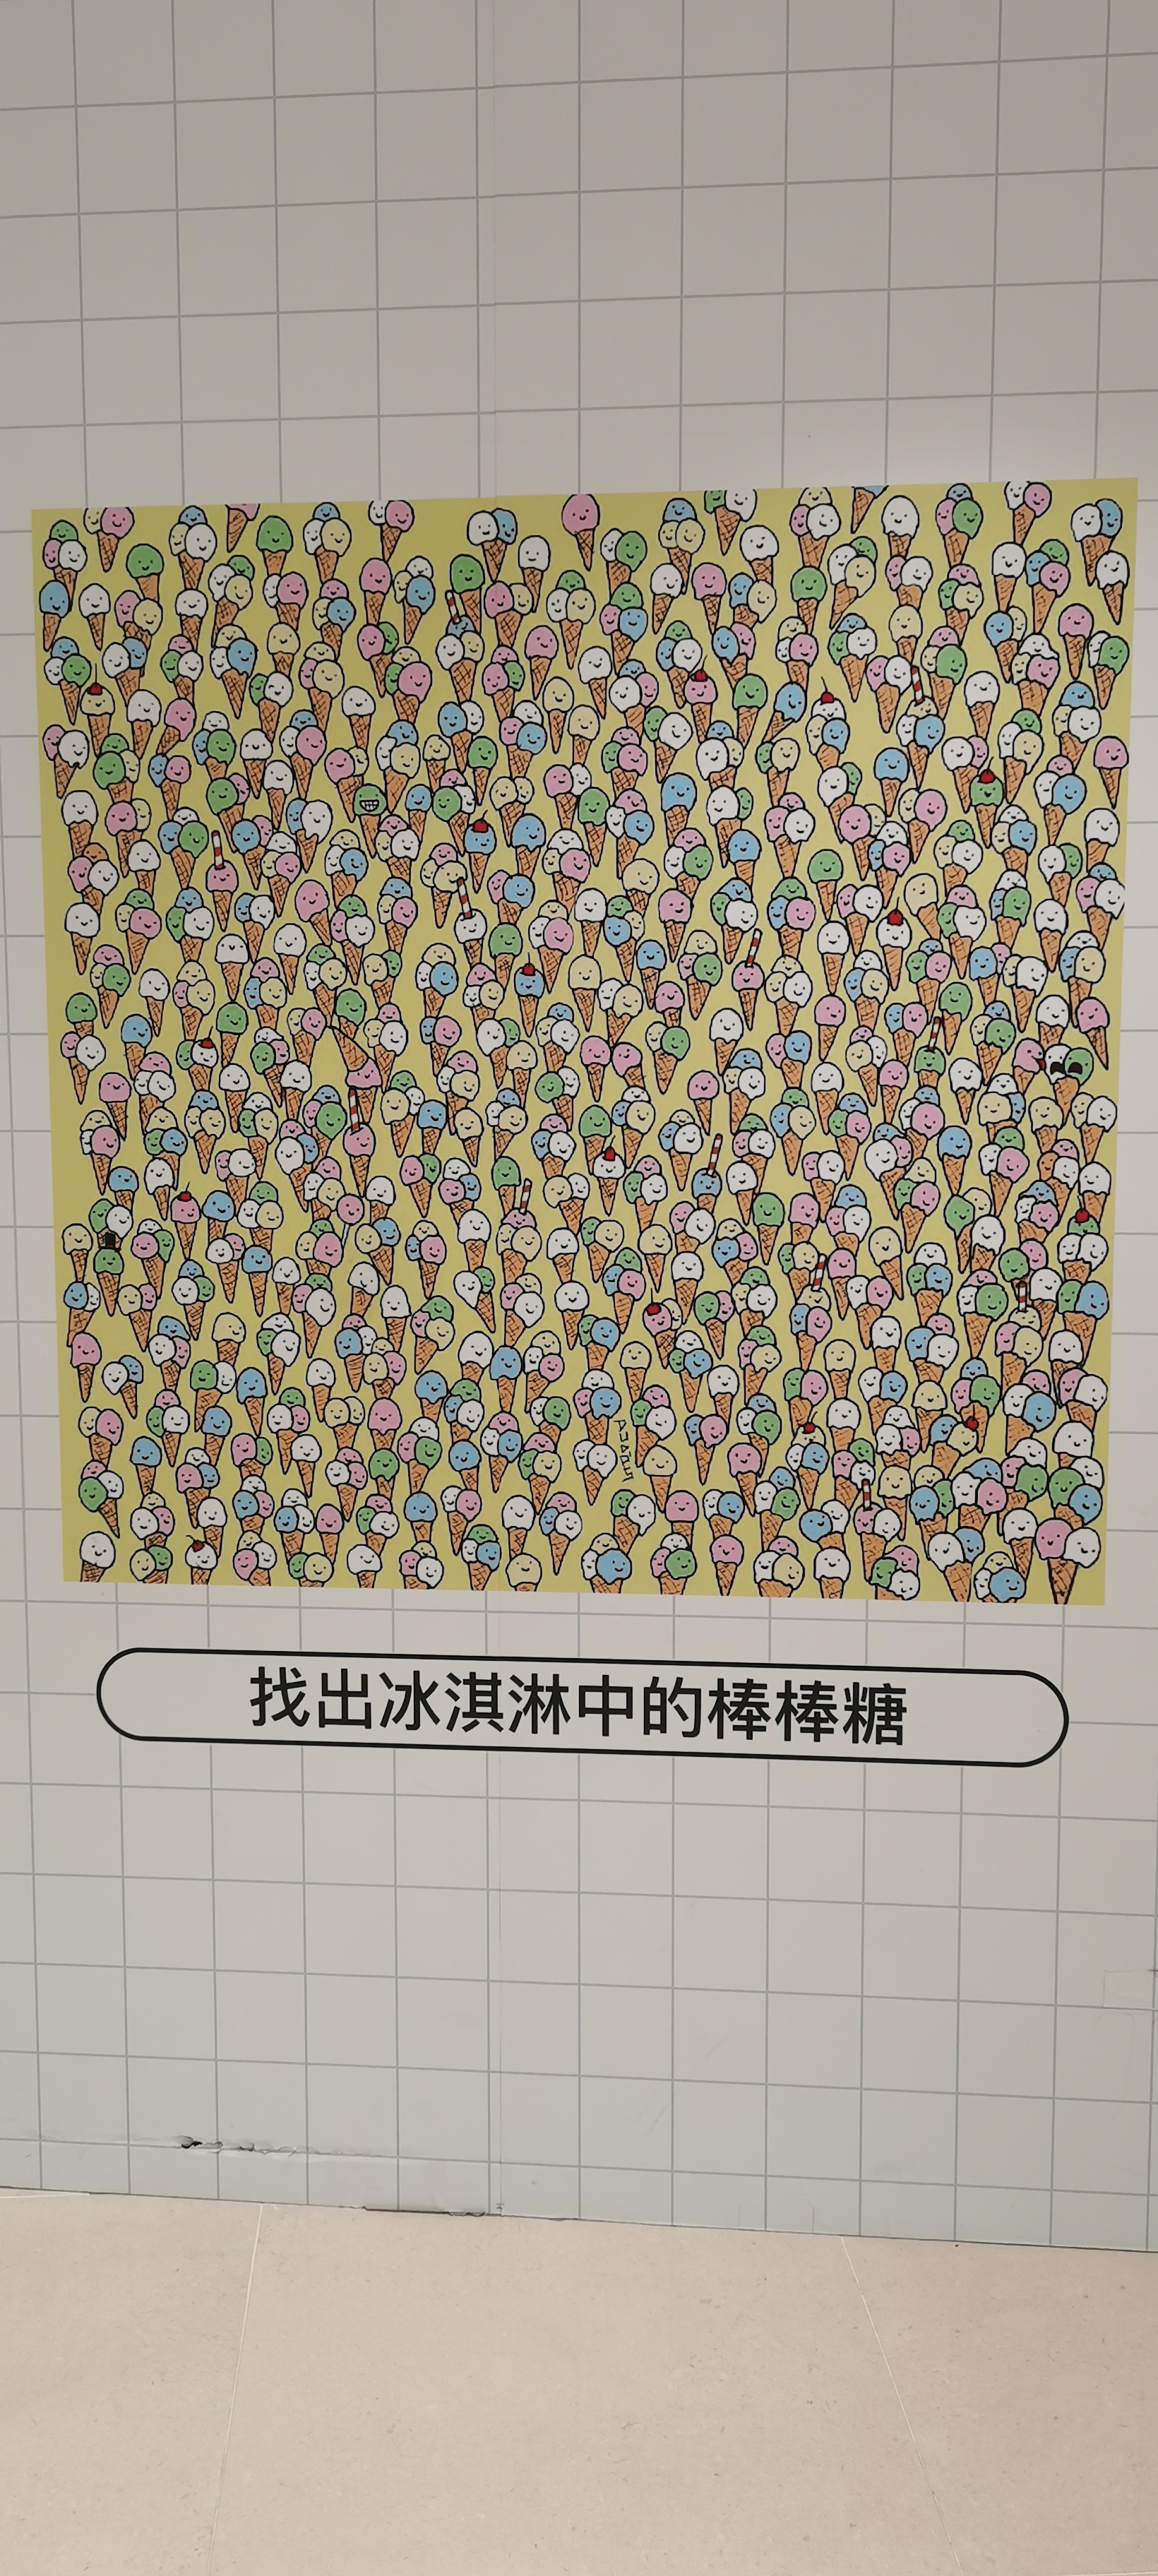 找出冰淇淋中的棒棒糖